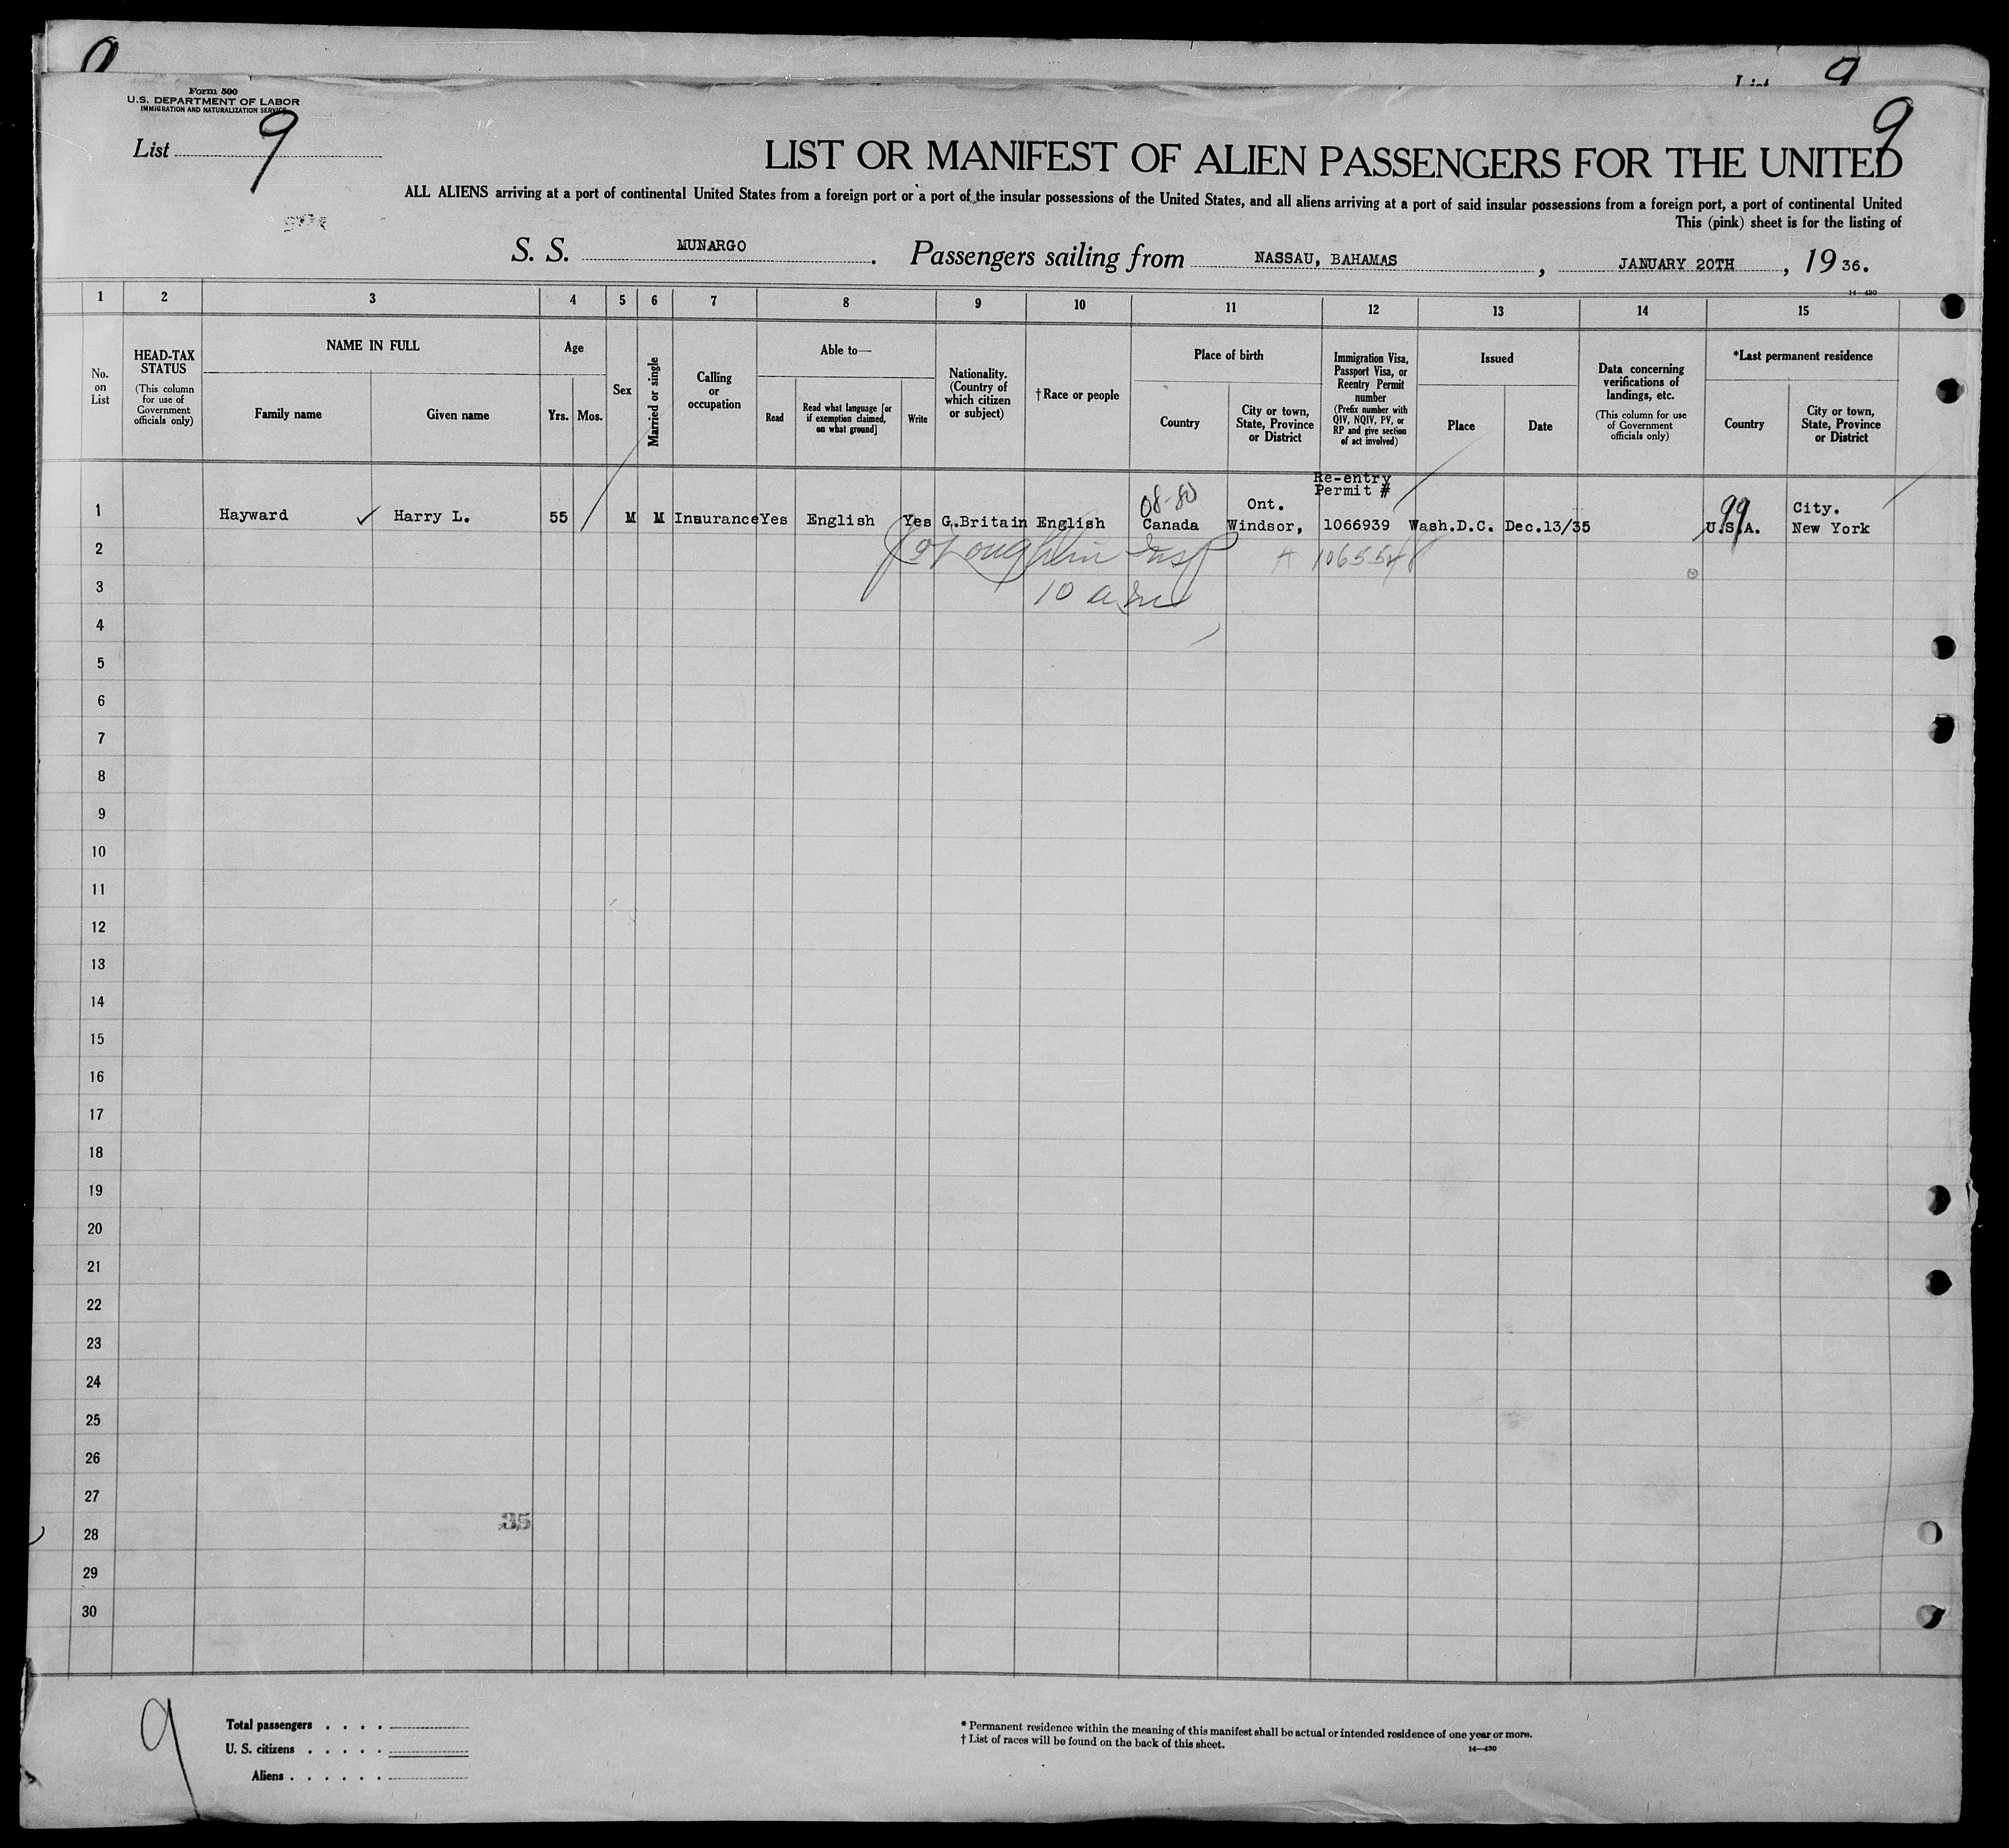 9
List 9
Form 500
U.S. DEPARTMENT OF LABOR
IMMIGRATION AND NATURALIZATION SERVICE
List 9
9
LIST OR MANIFEST OF ALIEN PASSENGERS FOR THE UNITED
ALL ALIENS arriving at a port of continental United States from a foreign port or a port of the insular possessions of the United States, and all aliens arriving at a port of said insular possessions from a foreign port, a port of continental United
This (pink) sheet is for the listing of
S. S. MUNARGO. Passengers sailing from NASSAU, BAHAMAS, JANUARY 20TH, 1936.
14—430
1 2 3 4 5 6 7 8 9 10 11 12 13 14 15
No. on List
HEAD-TAX STATUS
(This column for use of Government officials only)
NAME IN FULL
Family name
Given name
Age
Yrs. Mos.
Sex
Married or single
Calling or occupation
Able to—
Read
Read what language [or if exemption claimed, on what ground]
Write
Nationality. (Country of which citizen or subject)
†Race or people
Place of birth
Country
City or town, State, Province or District
Immigration Visa, Passport Visa, or Reentry Permit number
(Prefix number with QIV, NQIV, PV, or RP and give section of act involved)
Issued
Place
Date
Data concerning verifications of landings, etc.
(This column for use of Government officials only)
*Last permanent residence
Country
City or town, State, Province or District
Re-entry
Permit #
08-80 Ont. 99 City.
1 Hayward ✓ Harry L. 55 M M Insurance Yes English Yes G.Britain English Canada Windsor, 1066939 Wash.D.C. Dec.13/35 U.S.A. New York
2
3 10 a
4
5
6
7
8
9
10
11
12
13
14
15
16
17
18
19
20
21
22
23
24
25
26
27
35
28
29
30
9
Total passengers . . . .
U. S. citizens . . . . .
Aliens . . . . . .
* Permanent residence within the meaning of this manifest shall be actual or intended residence of one year or more.
† List of races will be found on the back of this sheet.
14—430